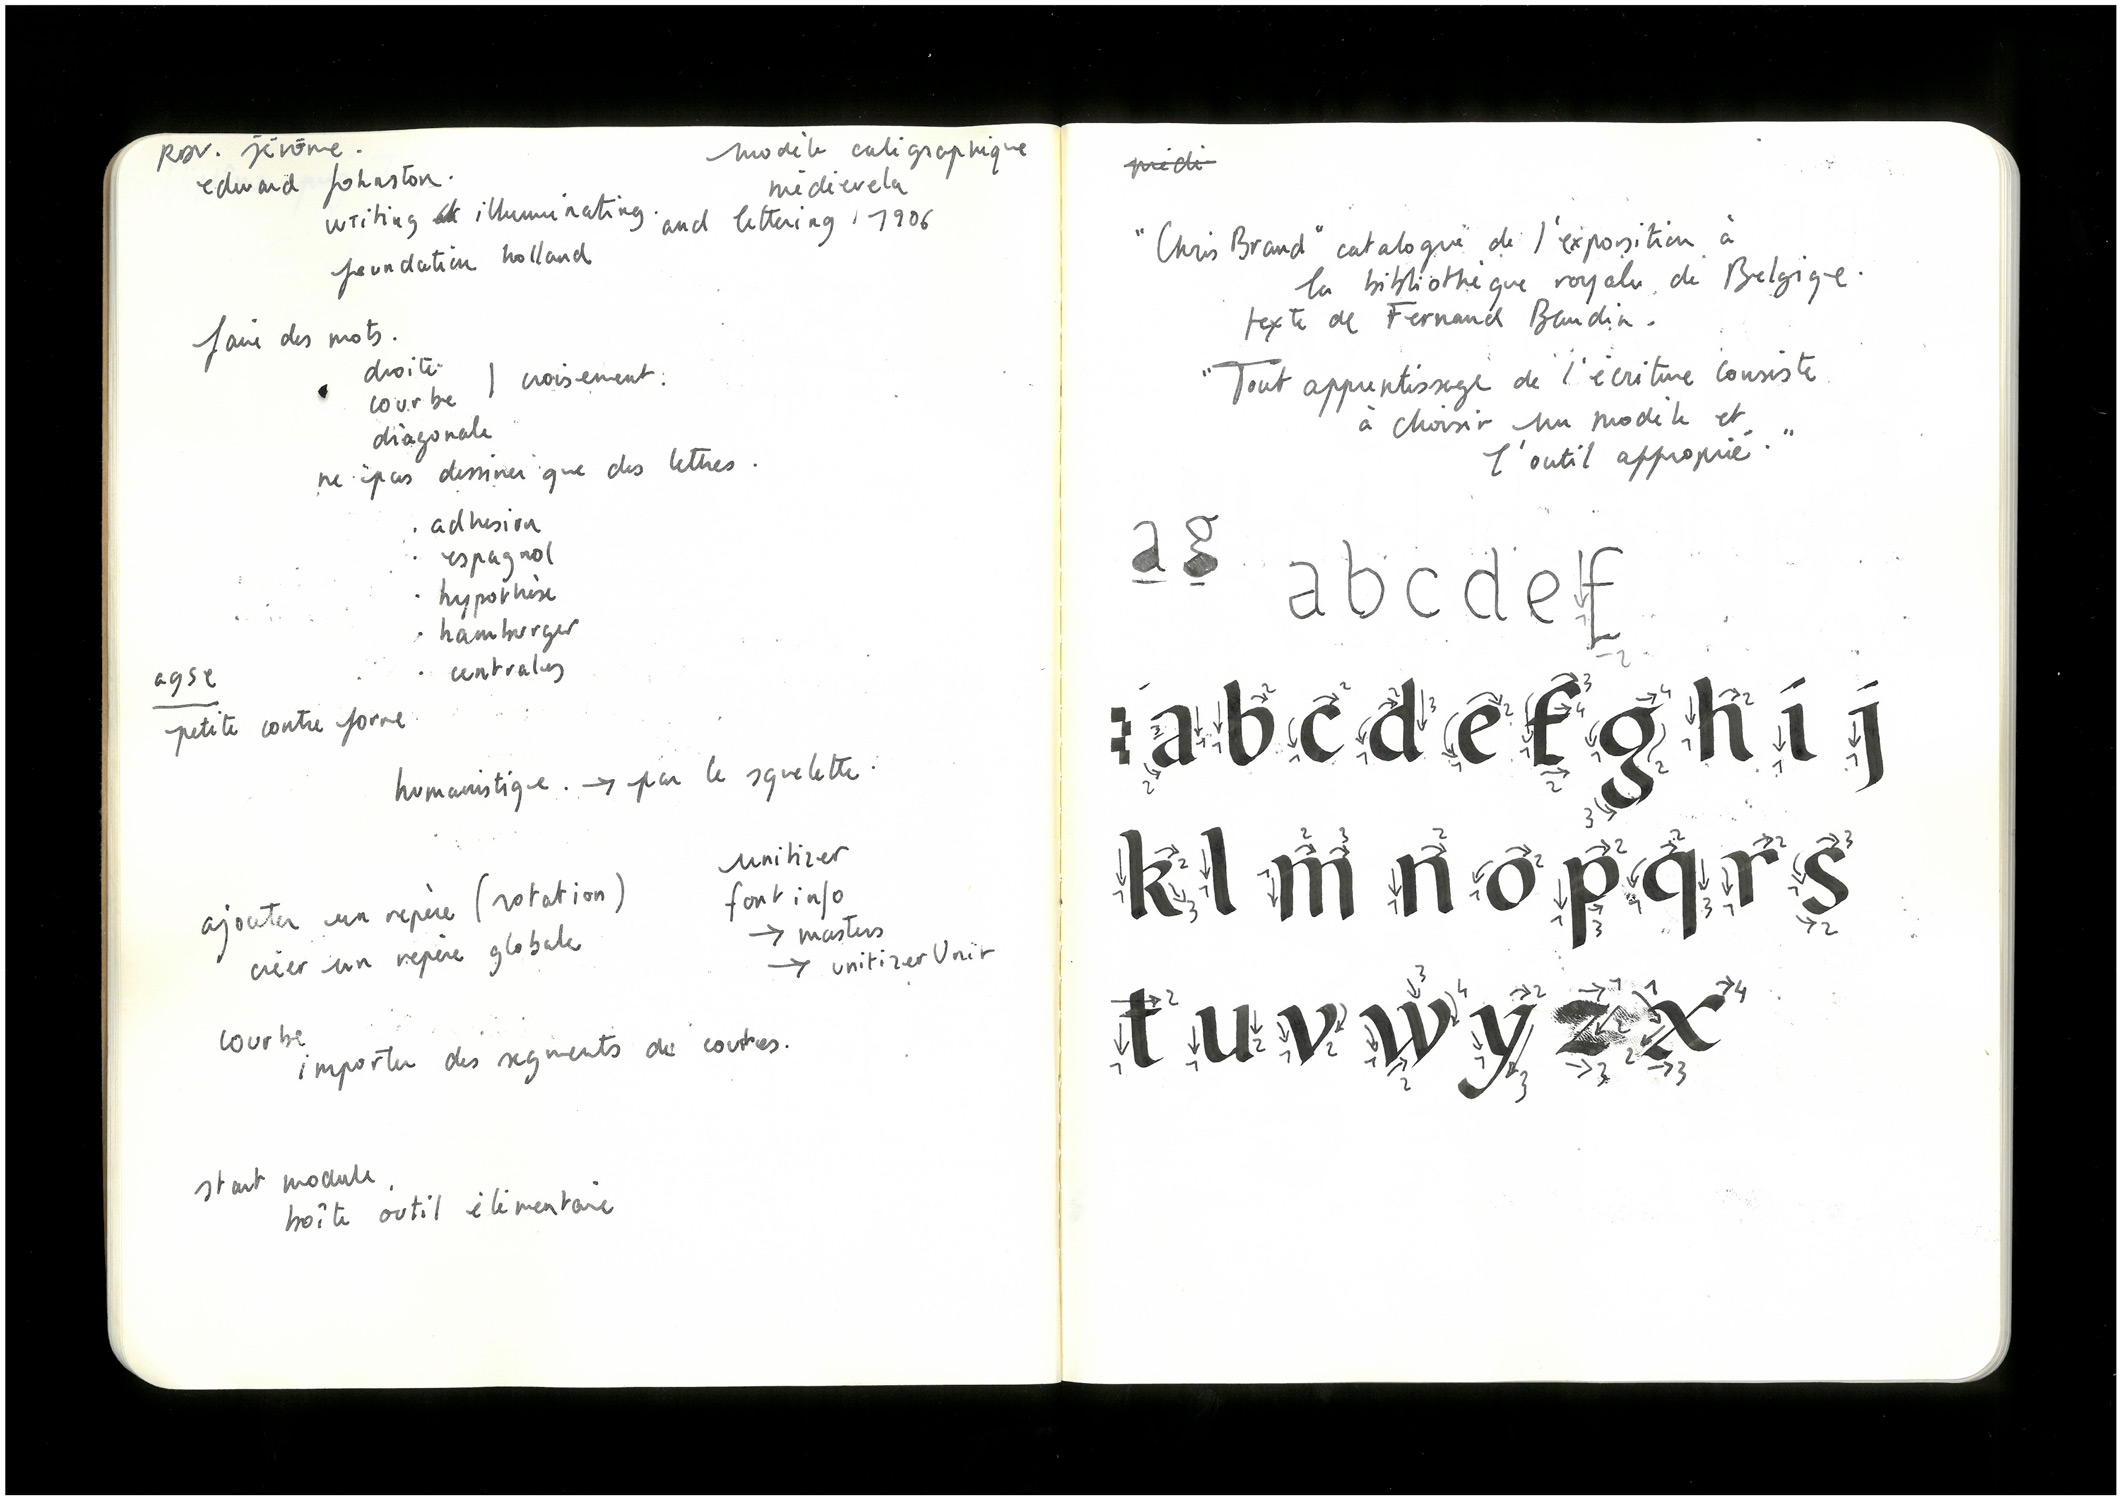 RDV. jérôme.
modèle caligraphique
edward Johnston.
médievela
writing illuminating. and lettering, 1906
foundation holland
faire des mots.
droite
courbe | croisement.
diagonale
ne pas dessiner que des lettres.
. adhesion
. espagnol
. hypothèse
. hamburger
. centrales
agse
petite contre forme
humanistique. → par le squelette.
unitizer
font info
→ masters
→ unitizer Unit
ajouter un repère (rotation)
créer un repère globale
courbe
importer des segments de courbes.
start module.
boîte outil élémentaire
midi
"Chris Brand" catalogue de l'exposition à
la bibliothèque royale de Belgique.
texte de Fernand Baudin.
"Tout apprentissage de l'écriture consiste
à choisir un modèle et
l'outil approprié."
a g
a b c d e f
a b c d e f g h i j
k l m n o p q r s
t u v w y z x